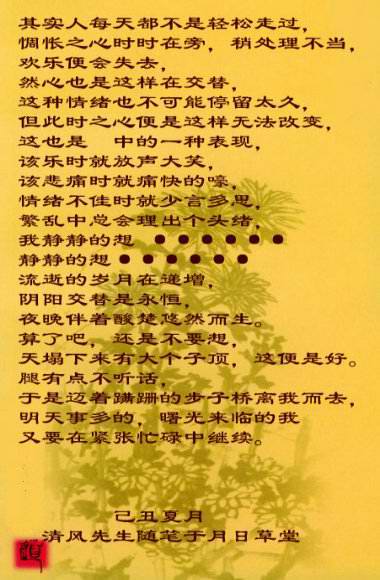 其实人每天都不是轻松走过，
惆怅之心时时在旁，稍处理不当，
欢乐便会失去，
然心也是这样在交替，
这种情绪也不可能停留太久，
但此时之心便是这样无法改变，
这也是 中的一种表现，
该乐时就放声大笑，
该悲痛时就痛快的嚎，
情绪不佳时就少言多思，
繁乱中总会理出个头绪，
我静静的想 ●●●●●●
静静的想●●●●●●
流逝的岁月在递增，
阴阳交替是永恒，
夜晚伴着酸楚悠然而生。
算了吧，还是不要想，
天塌下来有大个子顶，这便是好。
腿有点不听话，
于是迈着蹒跚的步子桥离我而去，
明天事多的，曙光来临的我
又要在紧张忙碌中继续。
己丑夏月
清风先生随笔于月日草堂